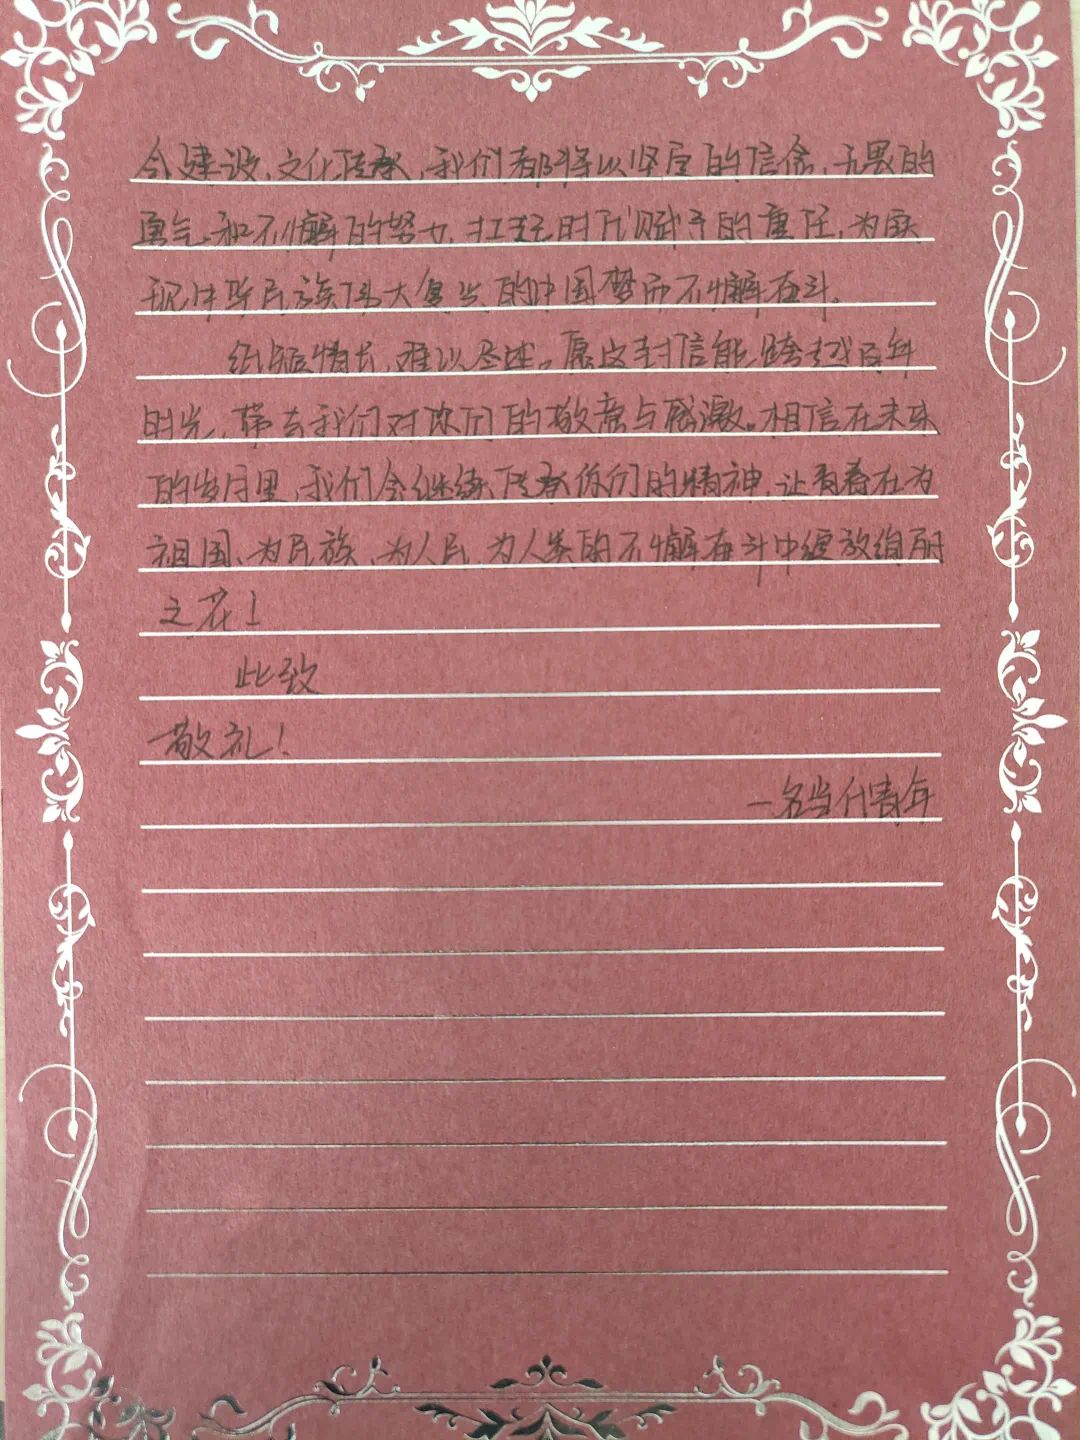 会建设、文化传承,我们都将以坚定的信念、无畏的
勇气和不懈的努力,扛起时代赋予的重任,为实
现中华民族伟大复兴的中国梦而不懈奋斗。
纸短情长,难以尽述。愿这封信能跨越百年
时光,带去我们对你们的敬意与感激。相信在未来
的岁月里,我们会继续传承你们的精神,让青春在为
祖国、为民族、为人民、为人类的不懈奋斗中绽放绚丽
之花!
此致
敬礼!
一名当代青年